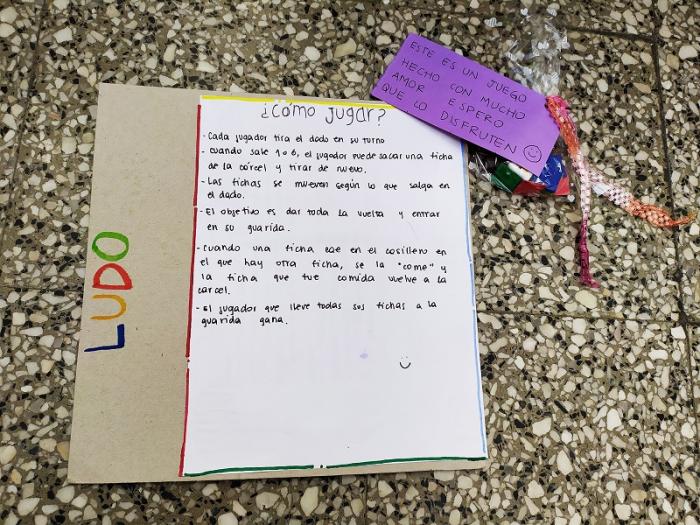 ¿Cómo jugar?
- Cada jugador tira el dado en su turno
- Cuando sale 1 o 6, el jugador puede sacar una ficha
de la cárcel y tirar de nuevo.
- Las fichas se mueven según lo que salga en
el dado.
- El objetivo es dar toda la vuelta y entrar
en su guarida.
- Cuando una ficha cae en el casillero en
el que hay otra ficha, se la "come" y
la ficha que fue comida vuelve a la
carcel.
- El jugador que lleve todas sus fichas a la
guarida gana.
LUDO
ESTE ES UN JUEGO
HECHO CON MUCHO
AMOR ESPERO
QUE LO DISFRUTEN